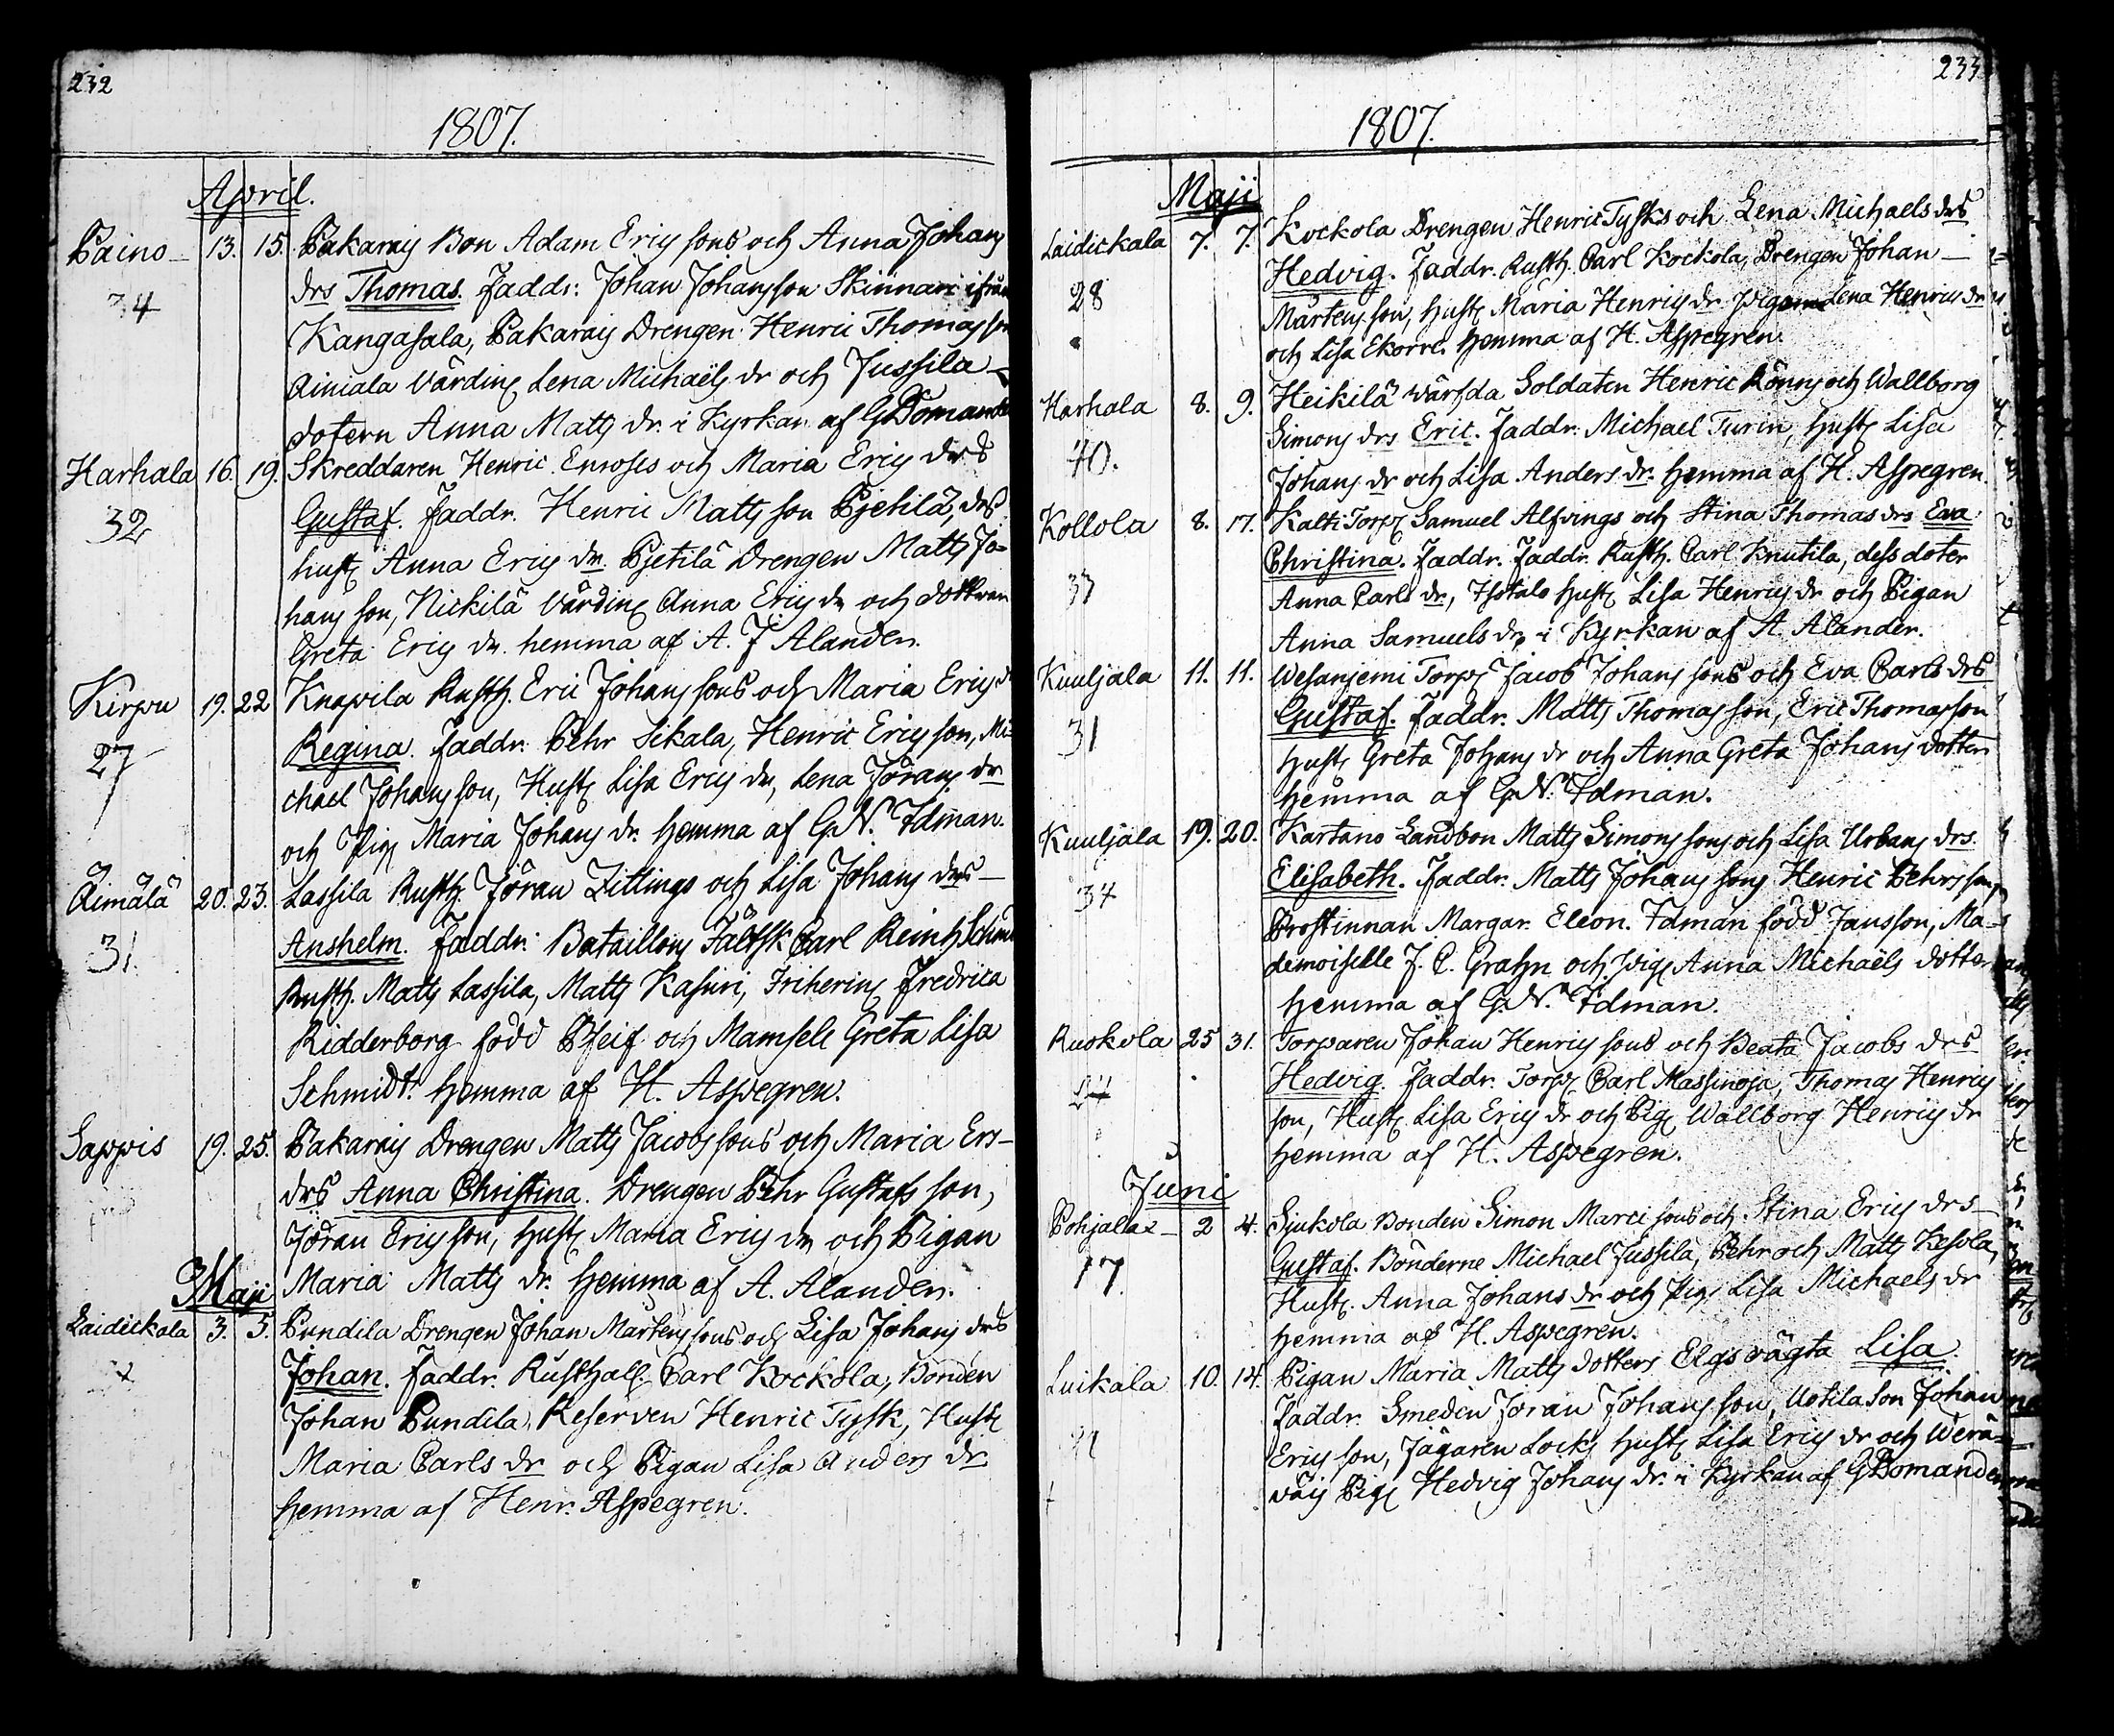 232
1807.
April.
Paino 13. 15. Pakarais Bon Adam Ericssons och Anna Johans
34 drs Thomas. Faddr: Johan Johansson Skinnari ifrån
Kangasala, Pakarais Drengen Henric Thomasson
Ainiala Värdinn Lena Michaëls dr och Jussila
dotern Anna Matts dr. i Kyrkan af G Domander
Harhala 16. 19. Skreddaren Henric Enroses och Maria Erics drs
32 Gustaf. Faddr. Henric Matts son Pjetilä, des
hust Anna Erics dr. Pjetilä Drengen Matts Jo-
hans son, Nickilä Värdinn Anna Erics dr och dottren
Greta Erics dr. hemma af A. J Alander.
Kirpu 19. 22 Knapila Rusth. Eric Johans sons och Maria Erics d
27 Regina. Faddr. Pehr Sikala, Henric Ericsson, Mi-
chael Johansson, Hust Lisa Erics dr, Lena Jörans dr
och Pig Maria Johans dr. hemma af G. N. Idman.
Aimälä 20. 23. Lassila Rusth. Jöran Zittings och Lisa Johans drs
31. Anshelm. Faddr. Bataillons Fältsk Carl Reinh Schm
Rusth. Matts Lassila, Matts Kasuri, Friherinn Fredrica
Ridderborg född Pfeif och Mamsell Greta Lisa
Schmidt. hemma af H. Aspegren.
Sappis 19. 25. Pakarais Drengen Matts Jacobs sons och Maria Ers-
drs Anna Christina. Drengen Pehr Gustafs son,
Jöran Ericsson, hust Maria Erics dr och Pigan
Maria Matts dr. hemma af A. Alander.
Maji
Laidickala 3. 5. Pundila Drengen Johan Mårtens sons och Lisa Johans drs
Johan. Faddr. Rusthall. Carl Kockola, Bonden
Johan Pundila, Reserven Henric Tysk, Hust
Maria Carls dr och Pigan Lisa Anders dr
hemma af Henr. Aspegren.
233
1807.
Maji
Laidickala 7. 7. Kockola Drengen Henric Tysks och Lena Michaels drs
28 Hedvig. Faddr. Rusth. Carl Kockola, Drengen Johan
Mårtens son, hust Maria Henrics dr Pigorna Lena Henrics dr
och Lisa Ekorre. hemma af H. Aspegren
Harhala 8. 9. Heikilä värfda Soldaten Henric Rönns och Wallborg
40. Simons drs Eric. Faddr. Michael Turin, hust Lisa
Johans dr och Lisa Anders dr. hemma af H. Aspegren.
Kollola 8. 17. Kalti Torp Samuel Alfvings och Stina Thomas drs Eva
33 Christina. Faddr. Faddr. Rusth. Carl Knutila, dess doter
Anna Carls dr, Isotalo Hust Lisa Henrics dr och Pigan
Anna Samuels dr, i Kyrkan af A. Alander.
Kuuljala 11. 11. Wesanjemi Torp Jacob Johans sons och Eva Carls drs
31 Gustaf. Faddr. Matts Thomasson, Eric Thomasson
Hust Greta Johans dr och Anna Greta Johans dotter
hemma af G. N. Idman.
Kuuljala 19. 20. Kartano Landbon Matts Simons sons och Lisa Urbans drs.
34 Elisabeth. Faddr. Matts Johans sons Henric Pehrsson
Prostinnan Margar. Eleon. Idman född Jansson, Ma-
demoiselle J. C. Grahn och Pig Anna Michaëls dotter
hemma af G. N. Idman.
Ruokola 25 31. Torparen Johan Henrics sons och Beata Jacobs drs
24 Hedvig. Faddr. Torp Carl Massinoja, Thomas Henrics
son, Hust Lisa Erics dr och Pig Wallborg Henrics dr
hemma af H. Aspegren.
Juni
Pohjala 2 4. Sjukola Bonden Simon Marci sons och Stina Erics drs
17. Gustaf. Bönderne Michael Jussila, Pehr och Matts Kesola,
Hust Anna Johans dr och Pig Lisa Michaels dr
hemma af H. Aspegren.
Luikala 10. 14. Pigan Maria Matts dotters Elgs vägta Lisa.
Faddr. Smeden Jöran Johans son, Uotila Son Johan
Erics son, Jägaren Locks hust Lisa Erics dr och Werä-
väis Pig Hedvig Johans dr. i Kyrkan af G Domander